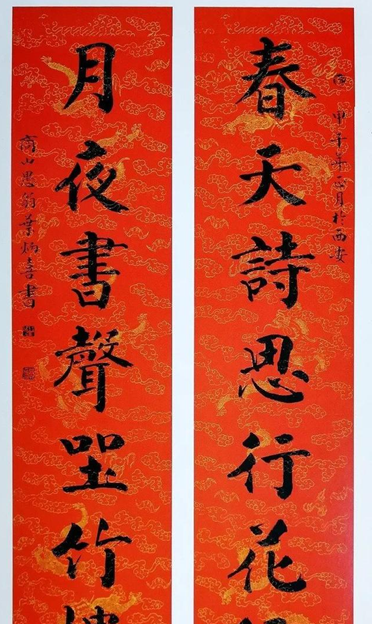 春天詩思行花
甲子年正月於西安
月夜書聲坐竹
商山思翁葉炳喜書